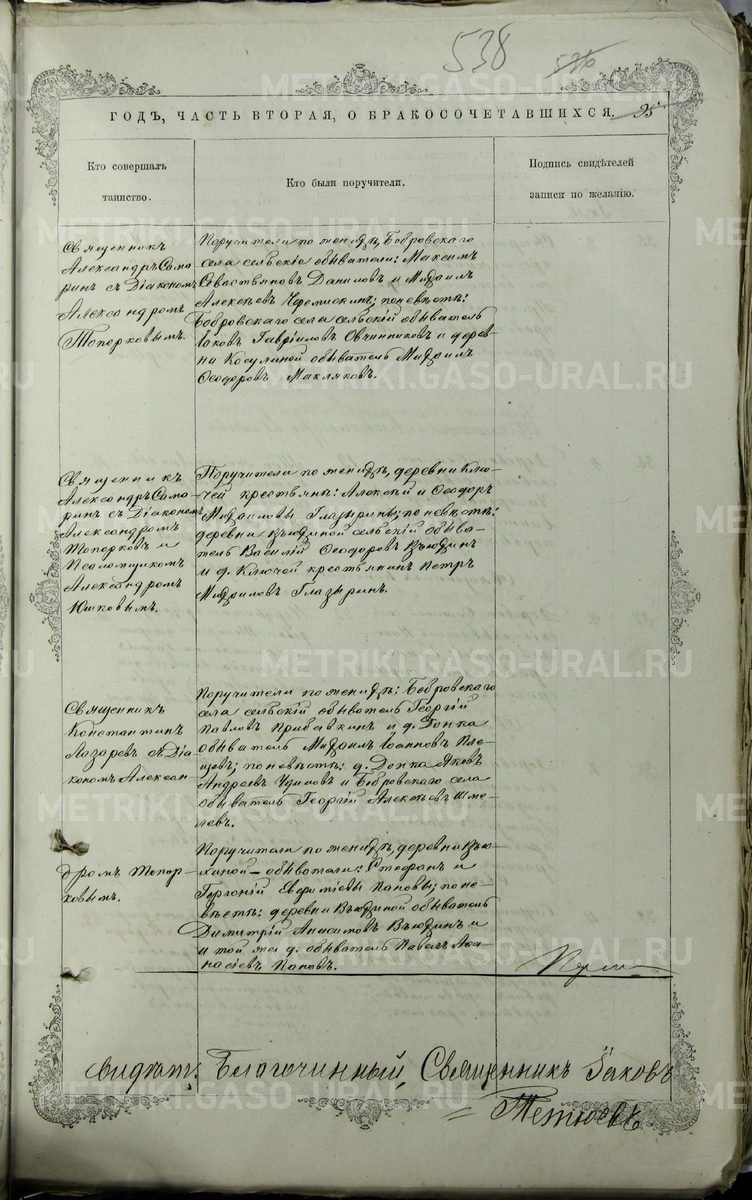 538
536
ГОДЪ, ЧАСТЬ ВТОРАЯ, О БРАКОСОЧЕТАВШИХСЯ. 95
Кто совершалъ
таинство.
Кто были поручители.
Подпись свидѣтелей
записи по желанію.
Священникъ
Александръ Само
ринъ съ Діакономъ
Александромъ
Топорковымъ.
Поручители по женихѣ, Бобровскаго
села сельскіе обыватели: Максимъ
Севастьяновъ Даниловъ и Михаилъ
Алексѣевъ Черемискинъ; по невѣстѣ:
Бобровскаго села сельскій обыватель
Іаковъ Гавріиловъ Овчинниковъ и дерев-
ни Косулиной обыватель Михаилъ
Ѳеодоровъ Макляковъ.
Священникъ
Александръ Само
ринъ съ Діакономъ
Александромъ
Топорковъ и
Псаломщикомъ
Александромъ
Юшковымъ.
Поручители по женихѣ, деревни Клю-
чей крестьяне: Алексѣй и Ѳеодоръ
Михаиловы Глазырины; по невѣстѣ:
деревни Вьюхиной сельскій обыва-
тель Василій Ѳеодоровъ Вьюхинъ
и д. Ключей крестьянинъ Петръ
Михаиловъ Глазыринъ.
Священникъ
Константинъ
Лазаревъ съ Діа-
кономъ Алексан-
дромъ Топор-
ковымъ.
Поручители по женихѣ: Бобровскаго
села сельскій обыватель Георгій
Павловъ Прибавкинъ и д.
обыватель Михаилъ Іоанновъ Пле-
щевъ; по невѣстѣ: д. Яковъ
Андреевъ и Бобровскаго села
обыватель Георгій Алексѣевъ Шме-
левъ.
Поручители по женихѣ, деревни Вью-
хиной обыватели: Стефанъ и
Горгоній Евфиміевы Пановы; по не-
вѣстѣ: деревни Вьюхиной обыватель
Димитрій Анисимовъ Вьюхинъ и
и той же д. обыватель Павелъ Аѳа-
насіевъ Пановъ.
Благочинный, Священникъ Іаковъ